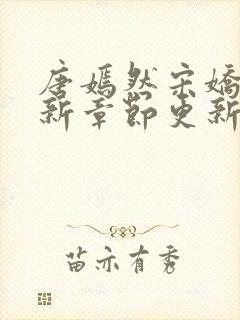 唐嫣然宋嬌
新章節更新
苗亦有秀